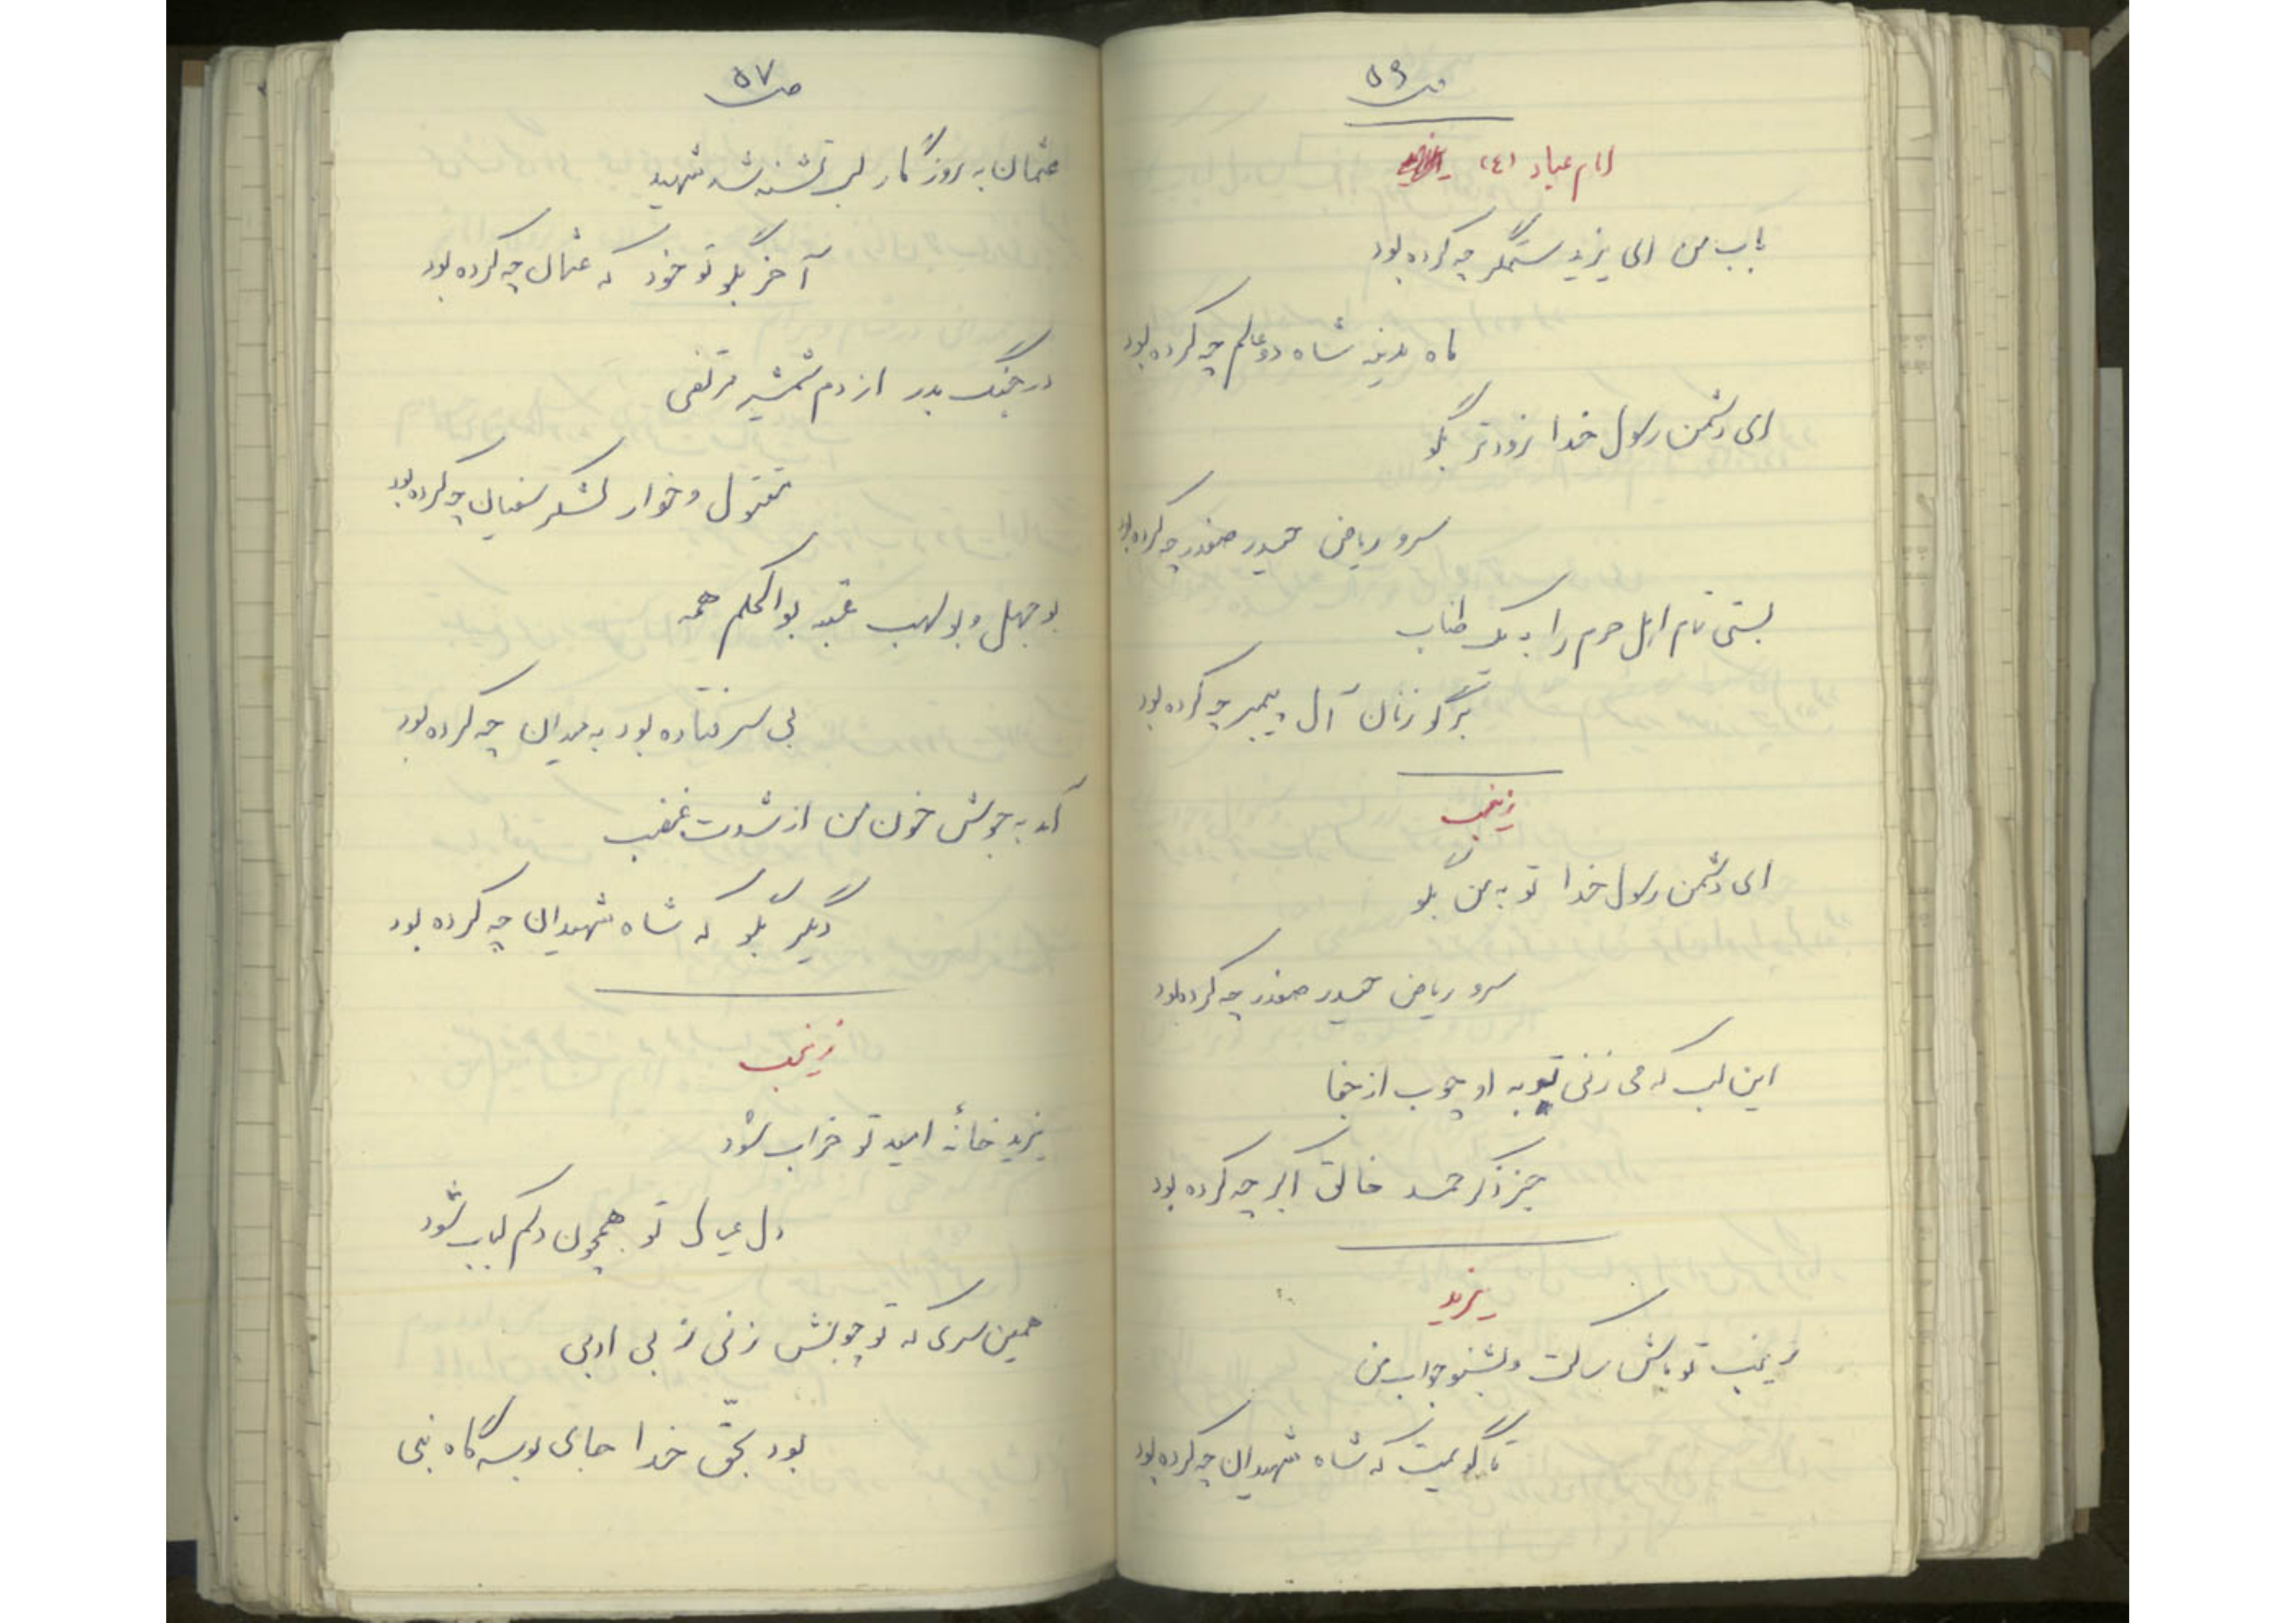 ص ۵۶
امام عباد (ع)
باب من ای یزید ستمگر چه کرده بود
ماه مدینه شاه دو عالم چه کرده بود
ای دشمن رسول خدا زودتر بگو
سرو ریاض حیدر صفدر چه کرده بود
بستی تمام اهل حرم را به یک طناب
برگو زنان آل پیمبر چه کرده بود
زینب
ای دشمن رسول خدا تو به من بگو
سرو ریاض حیدر صفدر چه کرده بود
این لب که می زنی تو به او چوب از جفا
جز ذکر حمد خالق اکبر چه کرده بود
یزید
زینب تو باش ساکت و بشنو جواب من
تا گویمت که شاه شهیدان چه کرده بود
ص ۵۷
عثمان به روزگار لب تشنه شد شهید
آخر بگو تو خود که عثمان چه کرده بود
در جنگ بدر از دم شمشیر مرتضی
مقتول و خوار لشکر سفیان چه کرده بود
بوجهل و بولهب عتبه بوالحکم همه
بی سر فتاده بود به میدان چه کرده بود
آمد به جوش خون من از شدت غضب
دیگر بگو که شاه شهیدان چه کرده بود
زینب
یزید خانهٔ امید تو خراب شود
دل عیال تو همچون دلم کباب شود
همین سری که تو چوبش زنی ز بی ادبی
بود بحقّ خدا جای بوسه گاه نبی